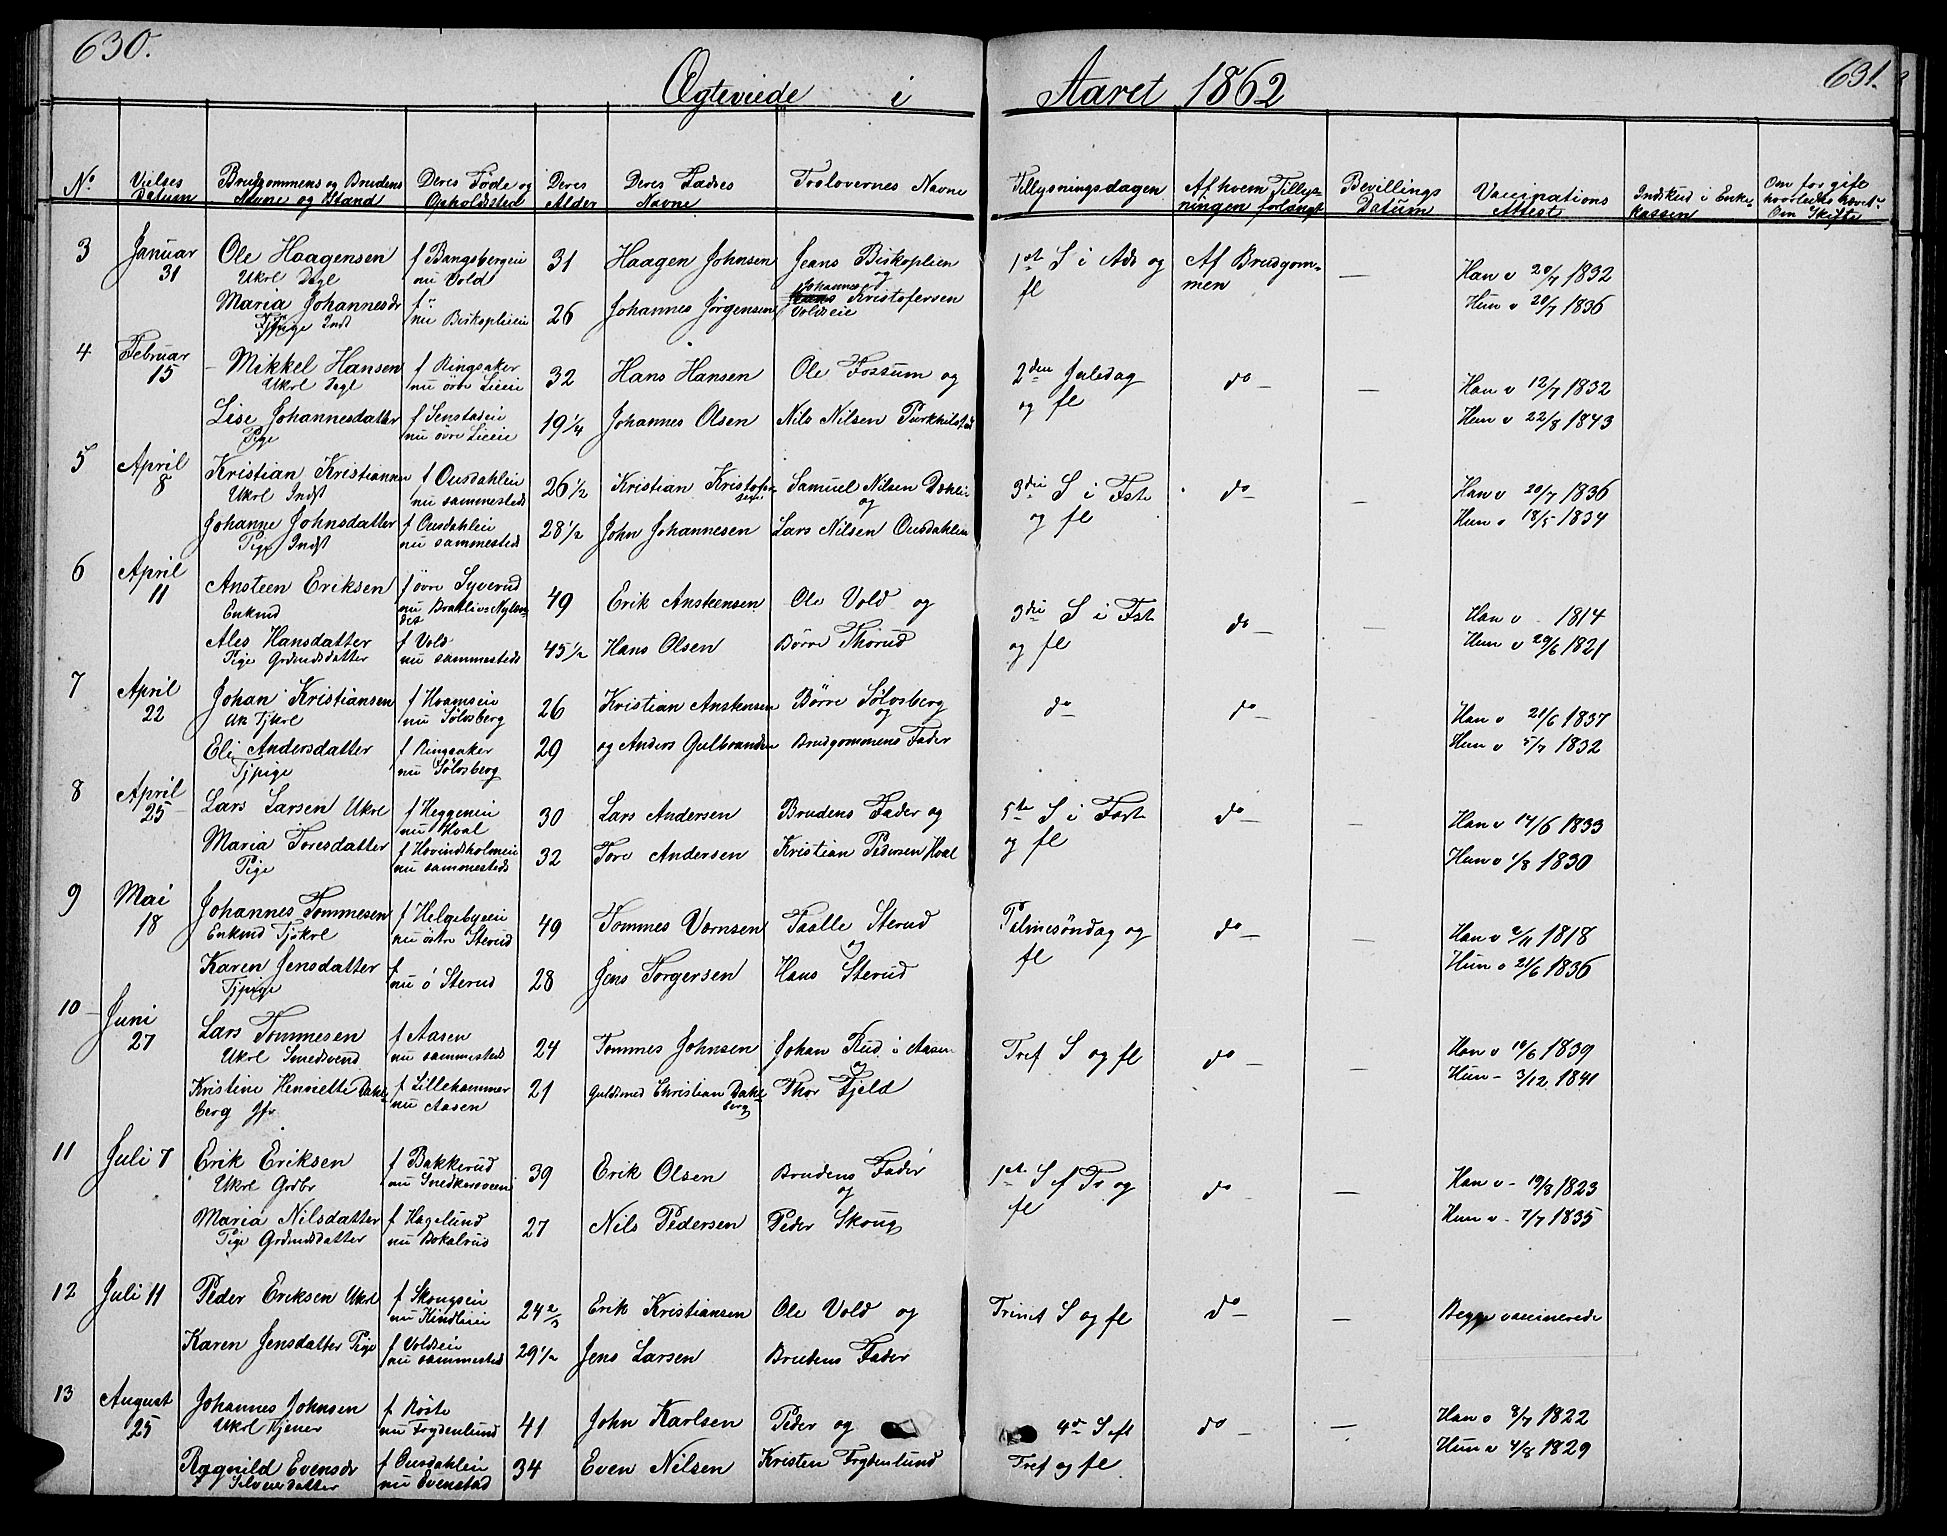 630.
Ægteviede i Aaret 1862
631.
No
Vielses Datum
Brudgommens og Brudens Navne og Stand
Deres Føde og Opholdssted
Deres Alder
Deres Fædres Navne
Forlovernes Navne
Tillysningsdagen
Af hvem Tillysningen forlangt
Bevillings Datum
Vaccinations Attest
Indskud i Enkekassen
3 Januar 31 Ole Haagensen f Bangsbergeie 31 Haagen Johnsen Jeans Biskoplien og 1ste S i Adv og fl Af Brudgommen — Han v 20/7 1832
Ukrl Dagl nu Vold
Maria Johannesdr f " 26 Johannes Jørgensen Johannes Kristofersen Hun v 20/7 1836
Pige Indst nu Biskoplieie Voldseie
4 Februar 15 Mikkel Hansen f Ringsaker 32 Hans Hansen Ole Fossum og 2den Juledag og fl do — Han v 12/7 1832
Ukrl Dagl nu øvre Lieeie
Lise Johannesdatter f Senstadeie 19 1/4 Johannes Olsen Nils Nilsen Hun v 22/8 1843
Pige nu øvre Lieeie
5 April 8 Kristian Kristiansen f Ousdahleie 26 1/2 Kristian Kristofersen Samuel Nilsen Dæhlie og 3die S i Fst og fl do — Han v 20/7 1836
Ukrl Indst nu sammesteds
Johanne Johnsdatter f Ousdahleie 28 1/2 John Johannesen Lars Nilsen Ousdahleie Hun v 18/5 1834
Pige Indst nu sammesteds
6 April 11 Ansteen Eriksen f øvre Syverud 49 Erik Ansteensen Ole Vold og 3die S i Fst og fl do — Han v - 1814
Enkmd nu
Ales Hansdatter f Vold 45 1/2 Hans Olsen Børre Thorud Hun v 29/6 1821
Pige Grdmdsdatter nu sammesteds
7 April 22 Johan Kristiansen f Hvamseie 26 Kristian Anstensen Børre Sølvsberg og do do — Han v 21/6 1837
Un Tjkrl nu Sølvsberg
Eli Andersdatter f Ringsaker 29 og Anders Gulbrandsen Brudgommens Fader Hun v 5/7 1832
Tjpige nu Sølvsberg
8 April 25 Lars Larsen Ukrl f Heggeneie 30 Lars Andersen Brudens Fader og 5te S i Fast og fl do — Han v 14/6 1833
nu Hval
Maria Toresdatter f Hovindsholmeie 32 Tore Andersen Kristian Pedersen Hval Hun v 1/8 1830
Pige nu sammesteds
9 Mai 18 Johannes Tommesen f Helgebyeie 49 Tommes Vernsen Paalle Sterud og Palmesøndag og fl do — Han v 2/11 1818
Enkmd Tjskrl nu østre Sterud
Karen Jensdatter f 28 Jens Torgersen Hans Sterud Hun v 21/6 1836
Tjpige nu ø Sterud
10 Juni 27 Lars Tommesen f Aasen 24 Tommes Johnsen Johan Rud i Aasen og Tref S og fl do — Han v 10/6 1839
Ukrl Smedsvend nu sammesteds
Kristine Henriette Dahlberg Jfr f Lillehammer 21 Guldsmed Christian Dahlberg Thor Fjeld Hun - 3/12 1841
nu Aasen
11 Juli 7 Erik Eriksen f Bakkerud 39 Erik Olsen Brudens Fader og 1ste S f Tr og fl do — Han v - 19/8 1823
Ukrl Grdbr nu Snedkersveen
Maria Nilsdatter f Hagelund 27 Nils Pedersen Peder Skoug Hun v - 7/7 1835
Pige Grdmdsdatter nu Bokalrud
12 Juli 11 Peder Eriksen Ukrl f Skougseie 24 2/3 Erik Kristiansen Ole Vold og Trinit S og fl do — Begge vaccinerede
nu Kindlieie
Karen Jensdatter Pige f Voldseie 29 1/2 Jens Larsen Brudens Fader
nu sammested
13 August 25 Johannes Johnsen f Røste 41 John Karlsen Peder og 4de S eft do — Han v 8/7 1822
Ukrl Tjener nu Frydenlund
Ragnild Evensdr f Ousdahleie 34 Even Nilsen Kristen Frydenlund Tref og fl Hun v 4/8 1829
Selveierdatter nu Evenstad